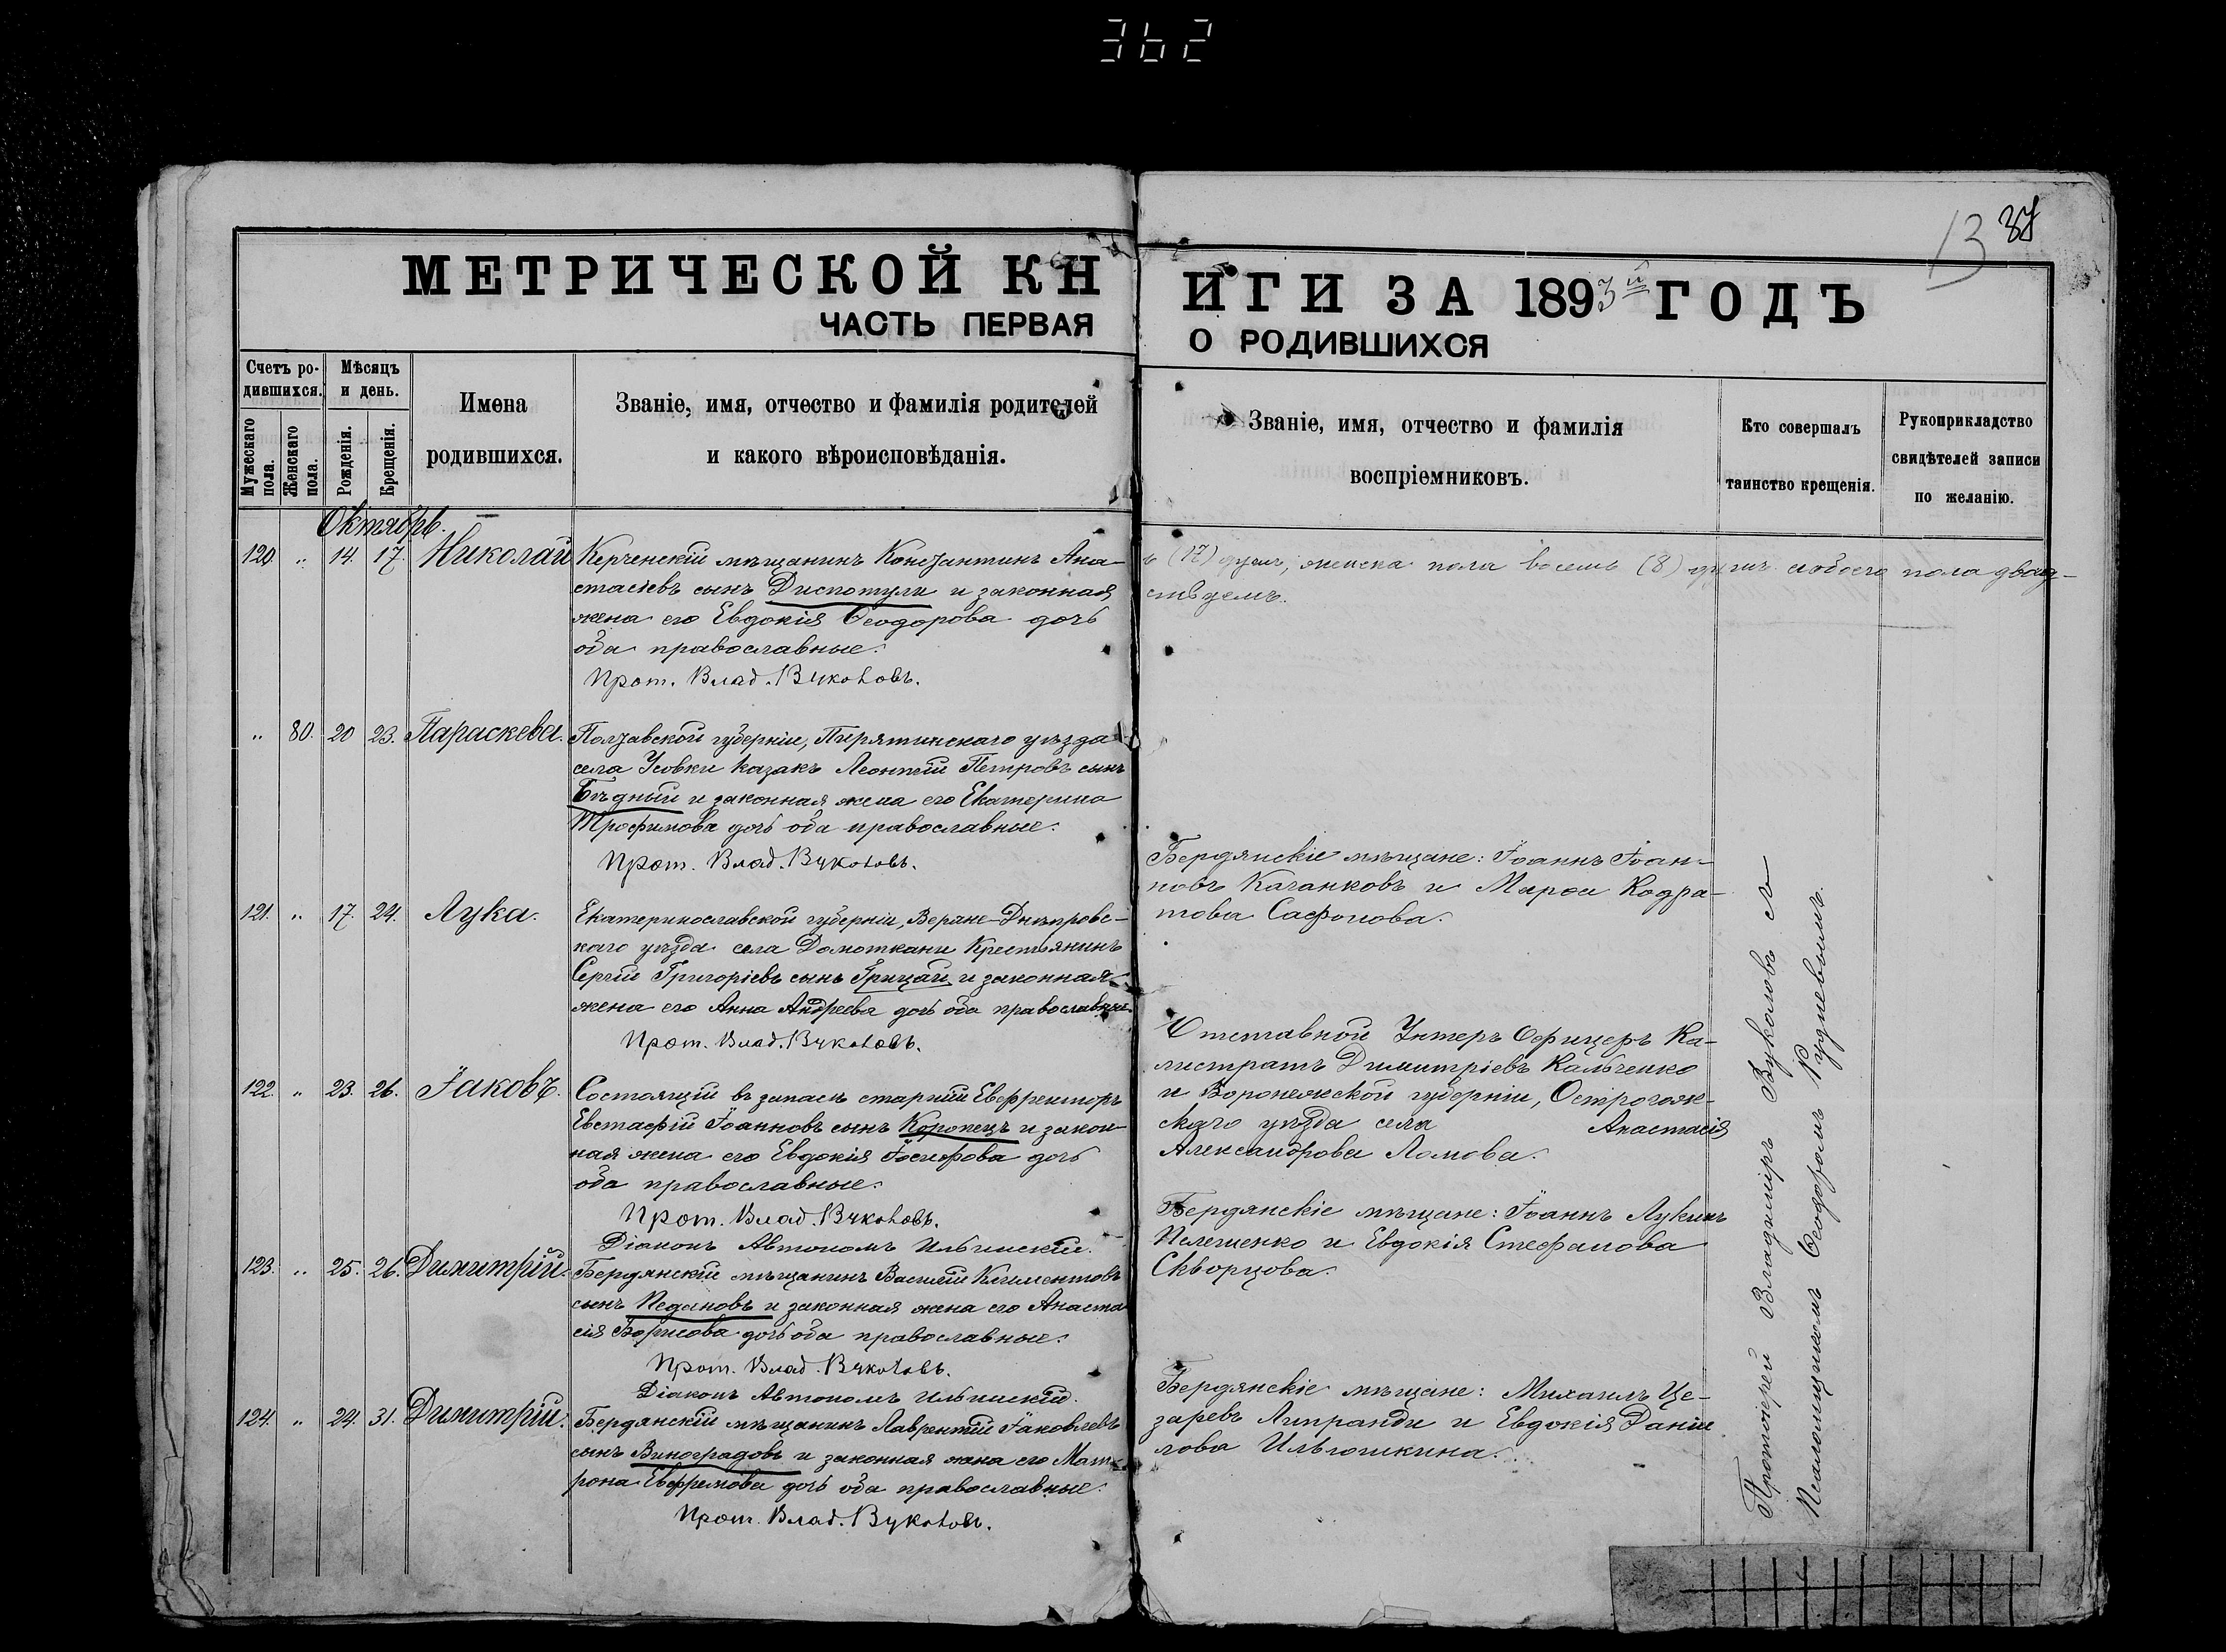 362
13 37
МЕТРИЧЕСКОЙ КН
ЧАСТЬ ПЕРВАЯ
Счетъ ро-
дившихся.
Мужескаго
пола.
Женскаго
пола.
Мѣсяцъ
и день.
Рожденія.
Крещенія.
Имена
родившихся.
Званіе, имя, отчество и фамилія родителей
и какого вѣроисповѣданія.
Октябрь.
120. „ 14. 17. Николай
Керченскій мѣщанинъ Константинъ Ана-
стасіевъ сынъ Диспотули и законная
жена его Евдокія Ѳеодорова дочь
оба православные.
Прот. Влад. Вуколовъ.
„ 80. 20 23. Параскева.
Полтавской губерніи, Пирятинскаго уѣзда
села Усовки казакъ Леонтій Петровъ сынъ
Бѣдный и законная жена его Екатерина
Трофимова дочь оба православные.
Прот. Влад. Вуколовъ.
121. „ 17. 24. Лука.
Екатеринославской губерніи, Верхне-Днѣпровс-
каго уѣзда села Домоткани Крестьянинъ
Сергій Григоріевъ сынъ Грицай и законная
жена его Анна Андреева дочь оба православные.
Прот. Влад. Вуколовъ.
122. „ 23. 26. Іаковъ.
Состоящій въ запасѣ старшій Евфрейторъ
Евстафій Іоанновъ сынъ Коропецъ и закон-
ная жена его Евдокія Іосифова дочь
оба православные.
Прот. Влад. Вуколовъ.
Діаконъ Автономъ Ильинскій.
123. „ 25. 26. Димитрій.
Бердянскій мѣщанинъ Василій Климентовъ
сынъ Педановъ и законная жена его Анаста-
сія Борисова дочь оба православные.
Прот. Влад. Вуколовъ.
Діаконъ Автономъ Ильинскій.
124. „ 24. 31. Димитрій.
Бердянскій мѣщанинъ Лаврентій Іаковлевъ
сынъ Виноградовъ и законная жена его Мат-
рона Евфремова дочь оба православные.
Прот. Влад. Вуколовъ.
ИГИ ЗА 1893й ГОДЪ
О РОДИВШИХСЯ
Званіе, имя, отчество и фамилія
воспріемниковъ.
Кто совершалъ
таинство крещенія.
Рукоприкладство
свидѣтелей записи
по желанію.
ъ (17) душъ, женска пола восемь (8) душъ обоего пола двад-
Бердянскіе мѣщане: Іоаннъ Іоан-
новъ Качанковъ и Марѳа Кодра-
това Сафонова.
Отставной Унтеръ Офицеръ Ка-
листратъ Димитріевъ Кальченко
и Воронежской губерніи, Острогож-
скаго уѣзда села Анастасія
Александрова Ломова.
Бердянскіе мѣщане: Іоаннъ Лукинъ
Пелешенко и Евдокія Стефанова
Скворцова.
Бердянскіе мѣщане: Михаилъ Це-
заревъ Липранди и Евдокія Даніи-
лова Ильюшкина.
Протоіерей Владиміръ Вуколовъ съ
Псаломщикомъ Ѳеодоромъ Рудневымъ.